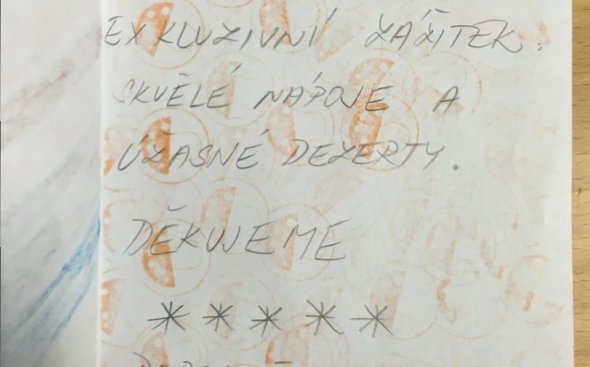 EXKLUZIVNÍ ZÁŽITEK.
SKVĚLÉ NÁPOJE A
ÚŽASNÉ DEZERTY.
DĚKUJEME
*****